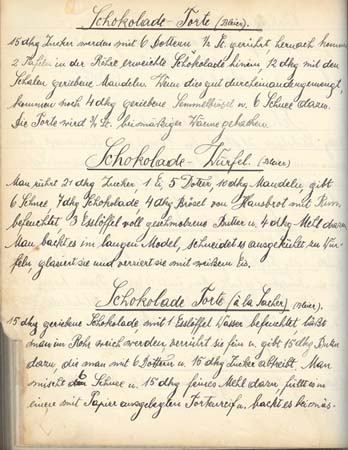 Schokolade-Torte (Meier).
15 dkg Zucker werden mit 6 Dottern, ½ St. gerührt, hernach kommen
2 Tafeln in der Röhre erweichte Schokolade hinein, 12 dkg mit den
Schalen geriebene Mandeln. Wenn dies gut durcheinandergemengt,
kommen noch 4 dkg geriebene Semmelbrösel u. 6 Schnee dazu.
Die Torte wird ¾ St. bei mäßiger Wärme gebacken.
Schokolade-Würfel. (Meier)
Man rührt 21 dkg Zucker, 1 Ei, 5 Doter, 10 dkg Mandeln, gibt
6 Schnee, 7 dkg Schokolade, 4 dkg Brösel von Hausbrot mit Rum
befeuchtet 3 Esslöffel voll geschmolzene Butter u. 4 dkg Mehl dazu.
Man backt es im langen Model, schneidet es ausgekühlt zu Wür-
feln glasiert sie und verziert sie mit weißem Eis.
Schokolade Torte (à la Sacher) (Meier).
15 dkg geriebene Schokolade mit 1 Esslöffel Wasser befeuchtet läßt
man im Rohr weich werden verrührt sie fein u. gibt 15 dkg Butter
dazu, die man mit 6 Dottern u. 15 dkg Zucker abtreibt. Man
mischt den 6 Schnee u. 15 dkg feines Mehl dazu füllt es in
einem mit Papier ausgelegten Tortenreif u. backt es bei mäs-